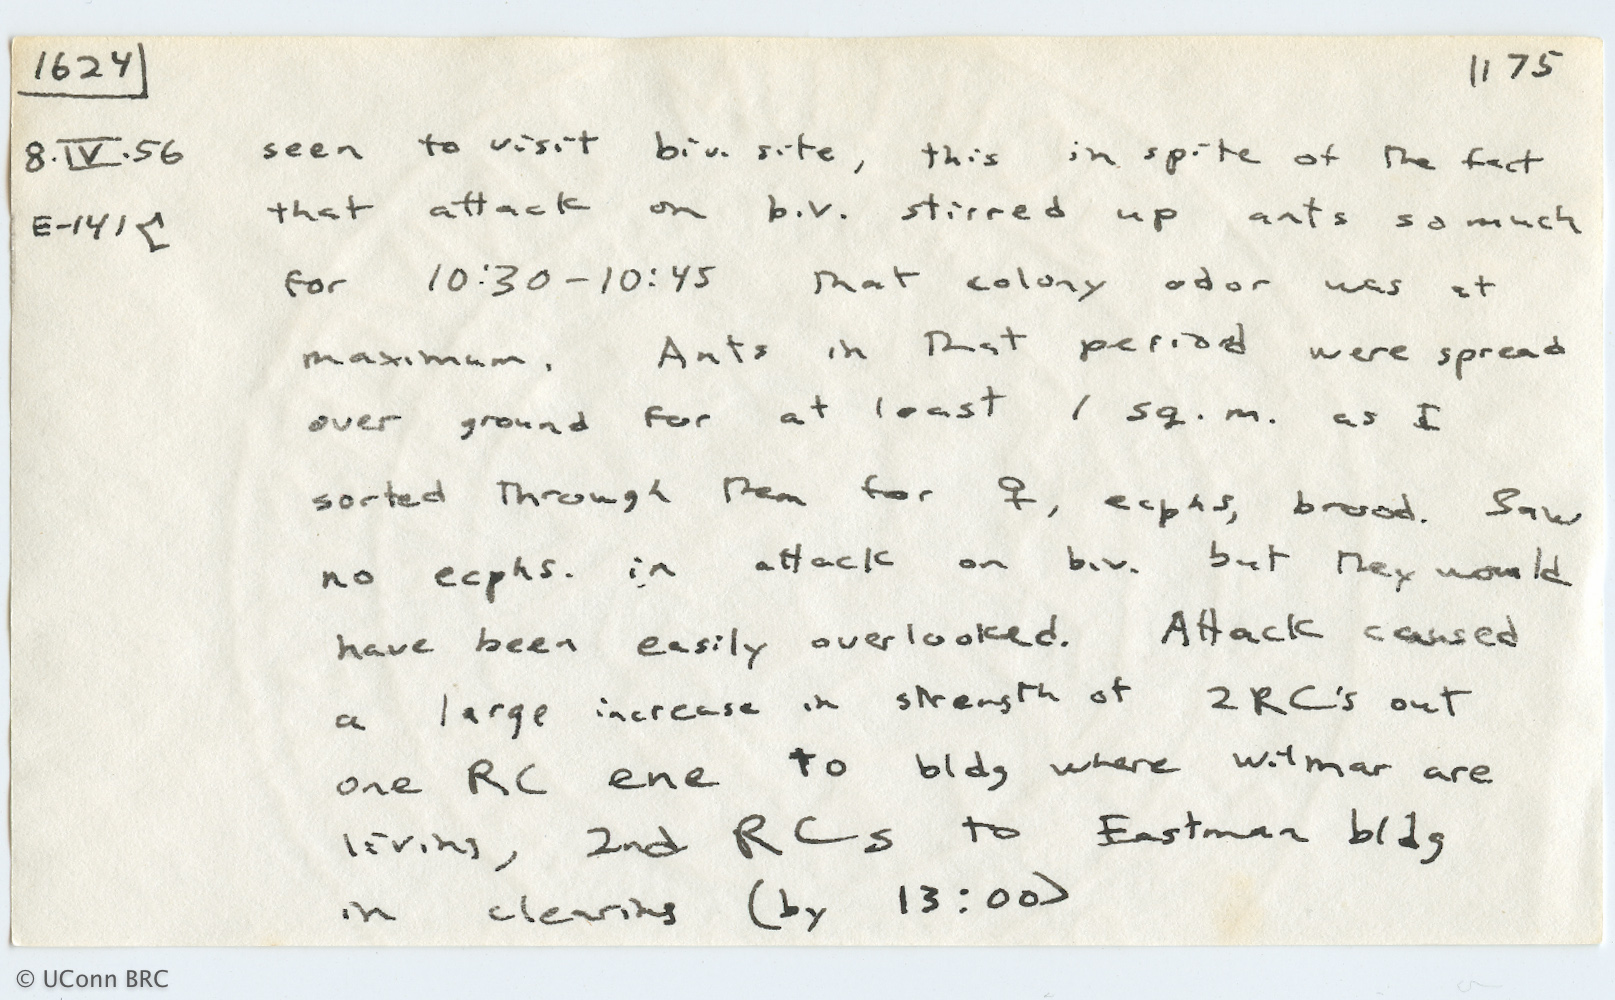 1624 1175
8.IV.56 seen to visit biv. site, this in spite of the fact
E-141 that attack on biv. stirred up ants so much
for 10:30-10:45 that colony odor was at
maximum. Ants in that period were spread
over ground for at least 1 sq. m. as I
sorted through them for ♀, ecphs, brood. Saw
no ecphs. in attack on biv. but they would
have been easily overlooked. Attack caused
a large increase in strength of 2 RC's out
one RC ene to bldg where Wilmar are
living, 2nd RC s to Eastman bldg
in clearing (by 13:00)
© UConn BRC